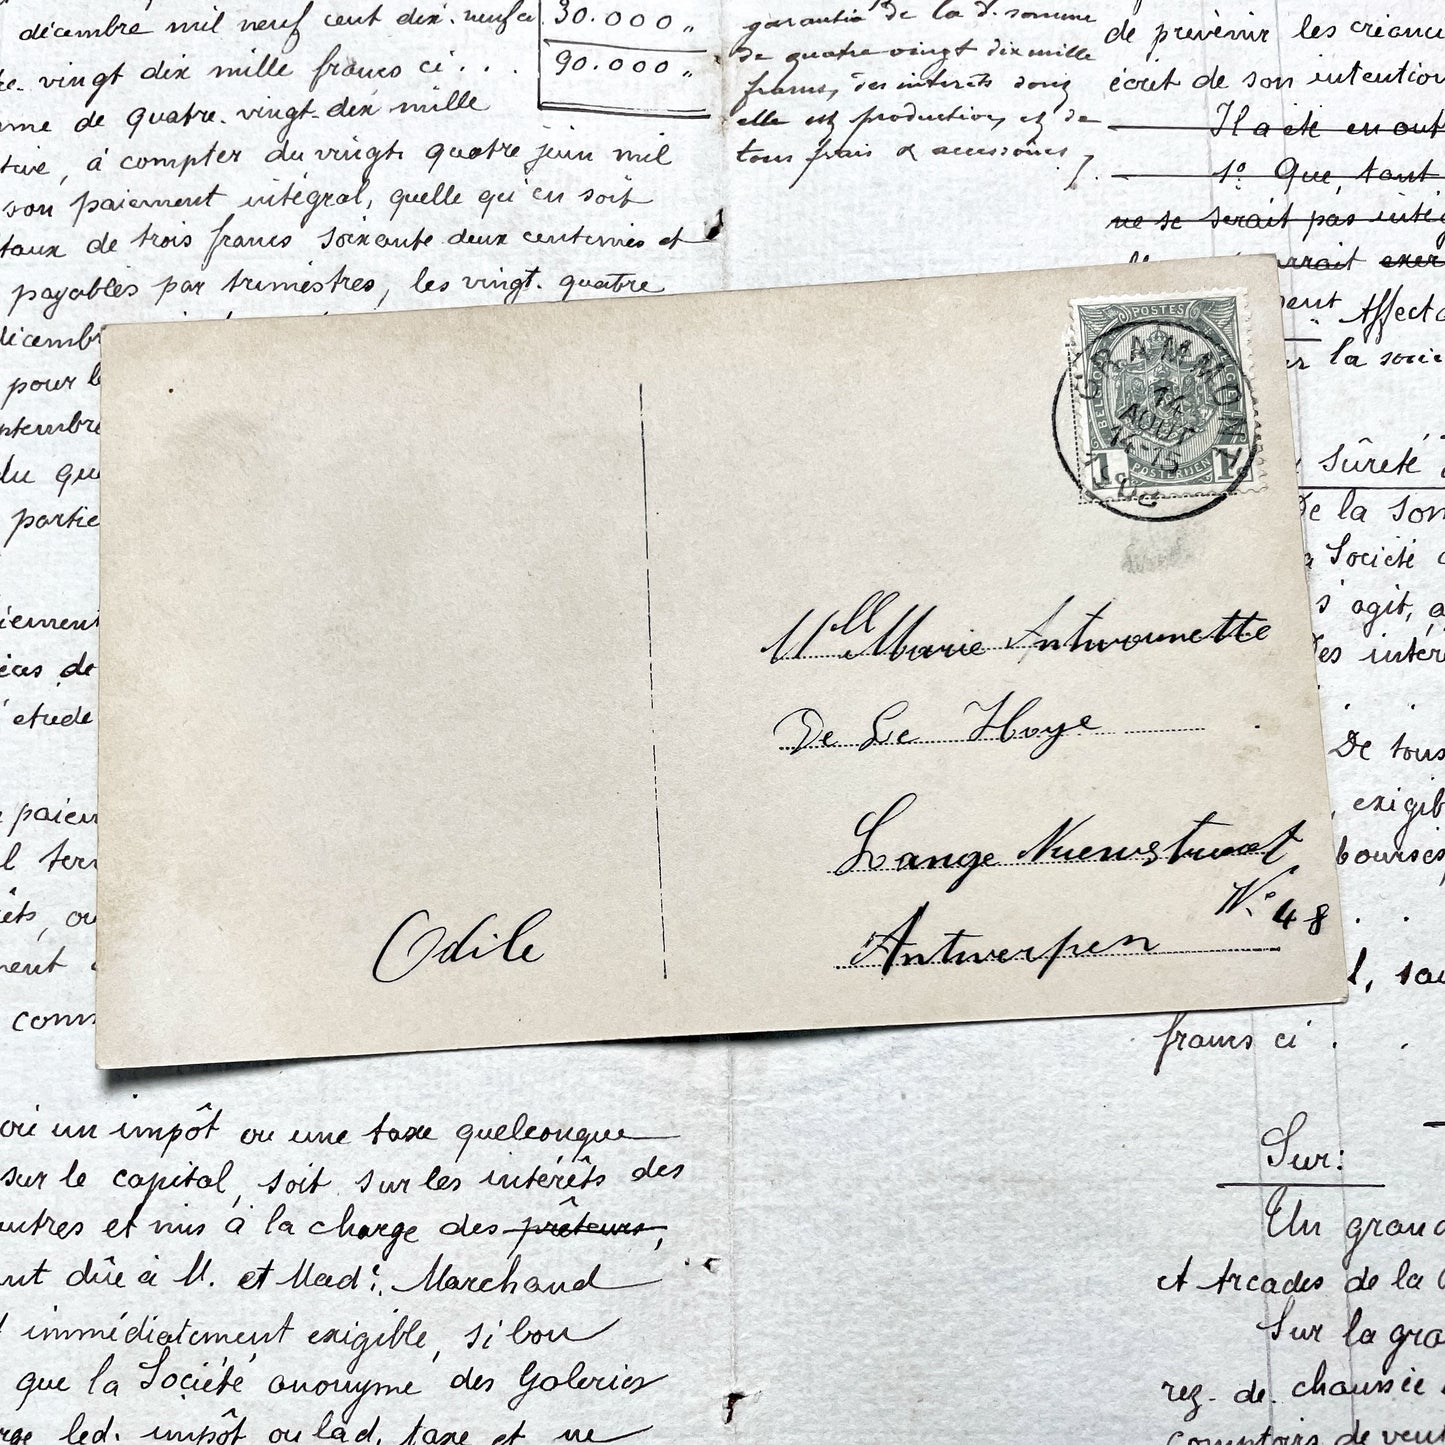 décembre mil neuf cent dix-neuf ci
30.000 „
vingt dix mille francs ci . . .
90.000 „
de quatre-vingt-dix mille
, à compter du vingt quatre juin mil
son paiement intégral, quelle qu'en soit
taux de trois francs soixante deux centimes et
payables par trimestres, les vingt-quatre
pour
du
partie
de
etude
garantie de la d. somme
de quatre vingt dix mille
francs, des intérêts dont
elle est productive, et de
tous frais & accessoires
de prévenir les
écrit de son intention
Il a été en outre
1º Que, tant
ne se serait pas
Affect
la
sûreté
De la
la Société
s'agit,
Des
De tous
exigib
bourses
francs ci . .
Sur:
Un grand
et Arcades de la
Sur la
rez-de-chaussée
comptoirs de
POSTES
BELGIQUE
1c 1c
POSTERIJEN
GRAMMONT
14
AOUT
14-15
Mlle Marie Antwounette
De Le Hoye
Lange Nieuwstraat
Nº 48
Antwerpen
Odile
ou un impôt ou une taxe quelconque
sur le capital, soit sur les intérêts des
autres et mis à la charge des prêteurs,
dûe à M. et Made. Marchand
immédiatement exigible, si bon
que la Société anonyme des Galeries
led. impôt ou lad. taxe et ne